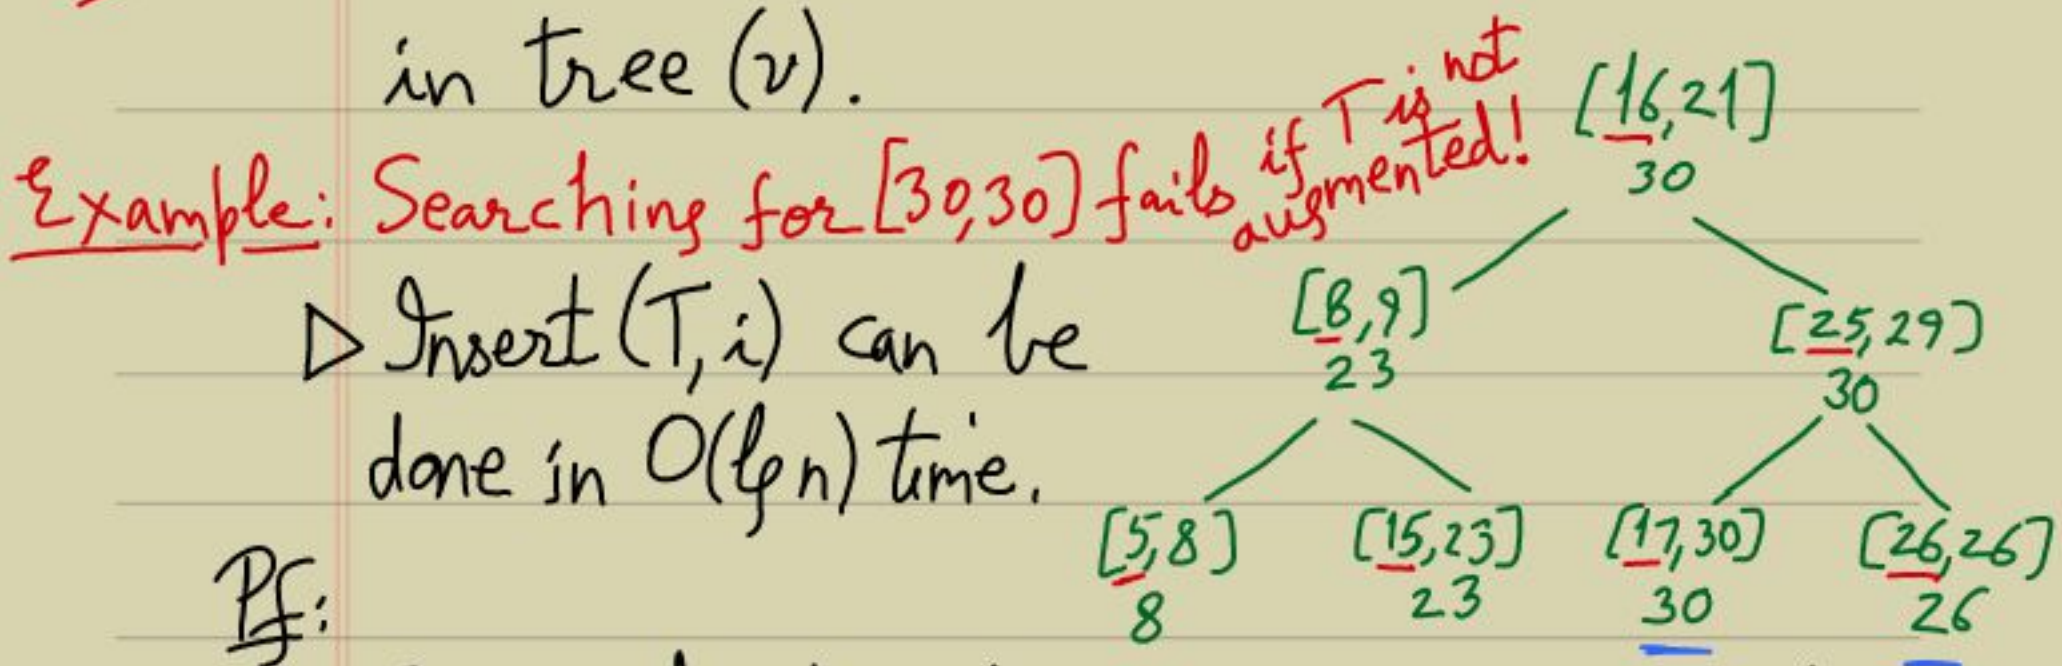 in tree (v).
Example: Searching for [30,30] fails if T is not augmented!
▷ Insert (T, i) can be
done in O(lg n) time.
Pf:
[16,21]
30
[8,9]
23
[25,29]
30
[5,8]
8
[15,23]
23
[17,30]
30
[26,26]
26